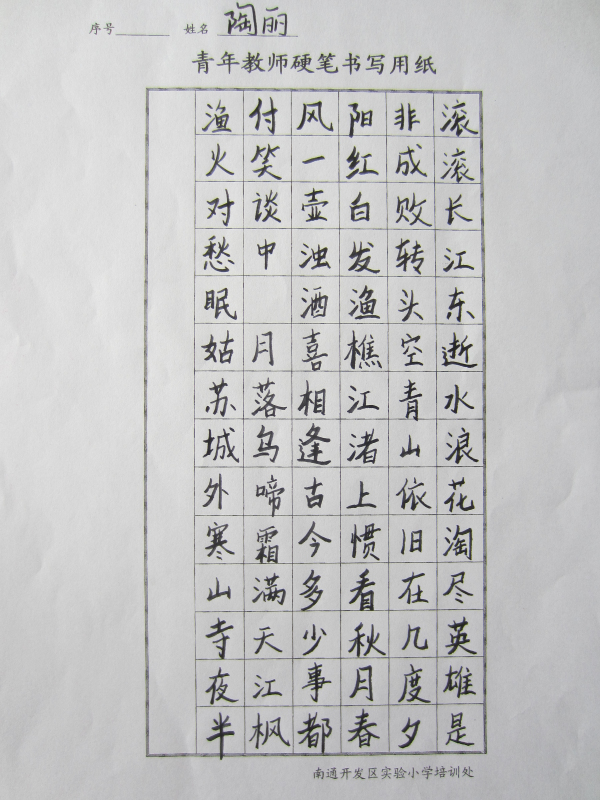 序号 姓名 陶丽
青年教师硬笔书写用纸
滚滚长江东逝水浪花淘尽英雄是
非成败转头空青山依旧在几度夕
阳红白发渔樵江渚上惯看秋月春
风一壶浊酒喜相逢古今多少事都
付笑谈中 月落乌啼霜满天江枫
渔火对愁眠姑苏城外寒山寺夜半
南通开发区实验小学培训处